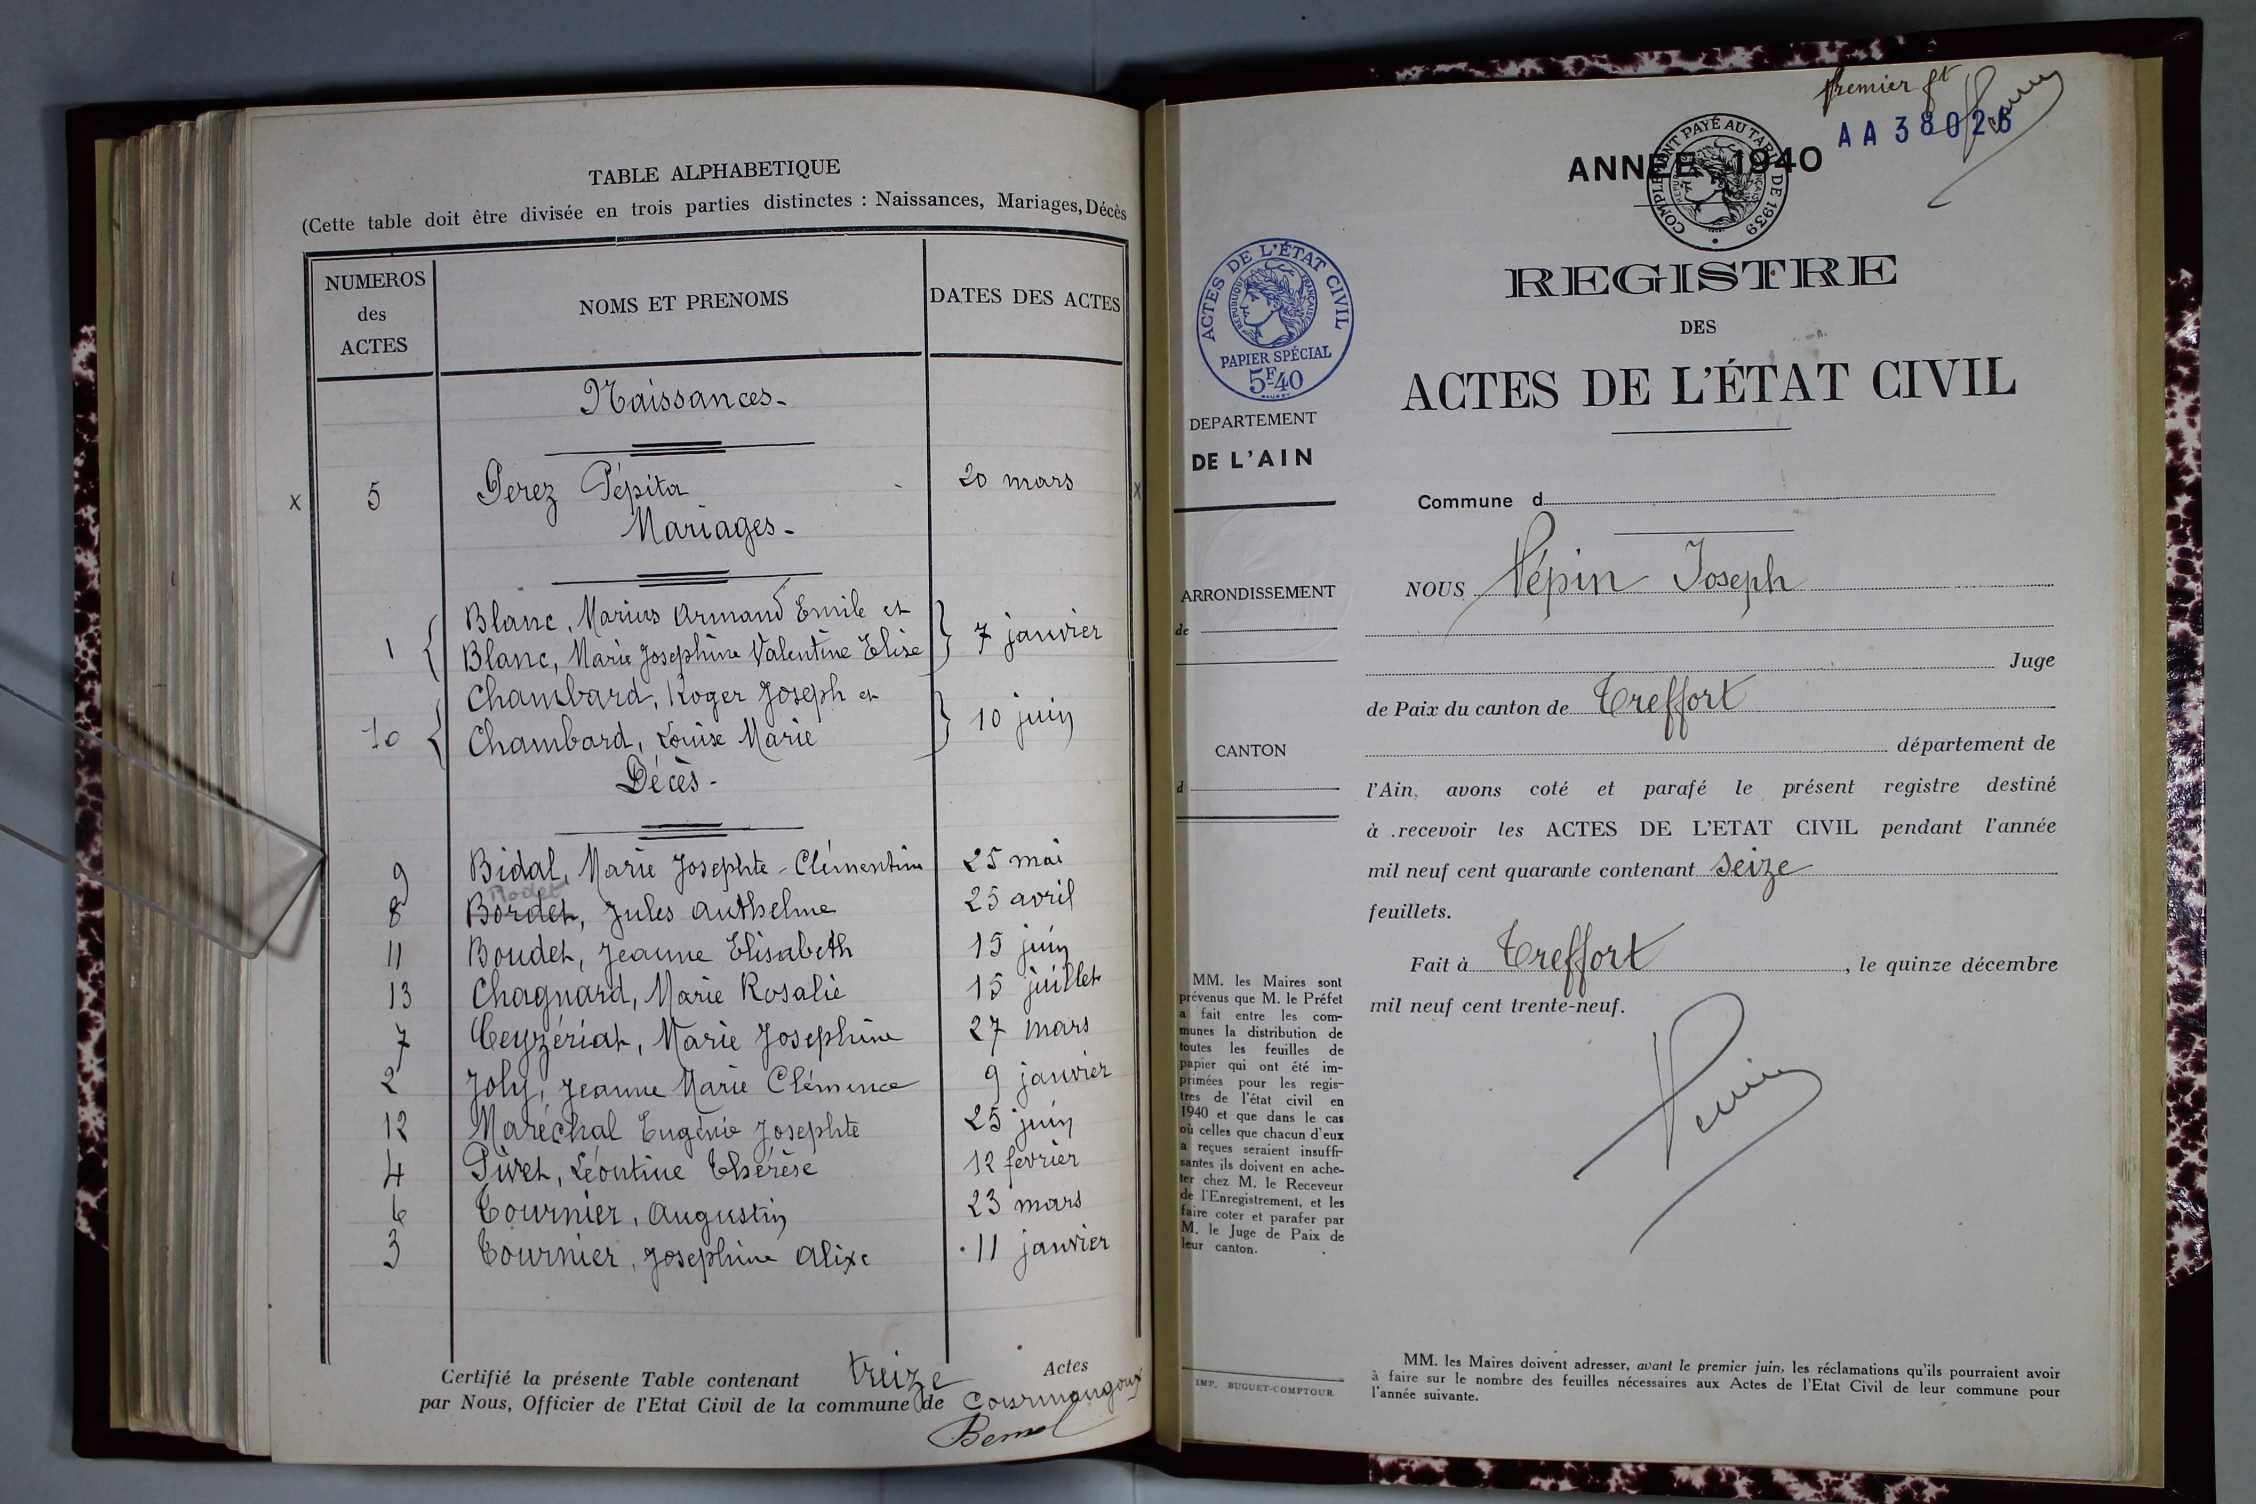 TABLE ALPHABETIQUE
(Cette table doit être divisée en trois parties distinctes : Naissances, Mariages, Décès
NUMEROS des ACTES
NOMS ET PRENOMS
DATES DES ACTES
Naissances-
x 5 Perez Pépita 20 mars x
Mariages-
1 { Blanc, Marius Armand Emile et
Blanc, Marie Josephine Valentine Elise } 7 janvier
10 { Chambard, Roger Joseph et
Chambard, Louise Marie } 10 juin
Décès-
9 Bidal, Marie Josephte-Clémentine 25 mai
Rodet
8 Bordet, Jules Anthelme 25 avril
11 Boudet, Jeanne Elisabeth 15 juin
13 Chagnard, Marie Rosalie 15 juillet
7 Ceyzériat, Marie Josephine 27 mars
2 Joly, Jeanne Marie Clémence 9 janvier
12 Maréchal Eugénie Josephte 25 juin
4 Pivet, Léontine Thérèse 12 février
6 Tournier, Augustin 23 mars
3 Tournier, Josephine Alixe 11 janvier
Certifié la présente Table contenant treize Actes
par Nous, Officier de l'Etat Civil de la commune de Courmangoux
Premier ft
AA 38026
COMPLEMENT PAYÉ AU TARIF DE 1939
ANNEE 1940
REGISTRE
DES
ACTES DE L'ÉTAT CIVIL
ACTES DE L'ÉTAT CIVIL
RÉPUBLIQUE FRANÇAISE
PAPIER SPÉCIAL
5F40
DEPARTEMENT
DE L'AIN
ARRONDISSEMENT
de
CANTON
d
MM. les Maires sont
prévenus que M. le Préfet
a fait entre les com-
munes la distribution de
toutes les feuilles de
papier qui ont été im-
primées pour les regis-
tres de l'état civil en
1940 et que dans le cas
où celles que chacun d'eux
a reçues seraient insuffi-
santes ils doivent en ache-
ter chez M. le Receveur
de l'Enregistrement, et les
faire coter et parafer par
M. le Juge de Paix de
leur canton.
IMP. BUGUET-COMPTOUR
Commune d
NOUS Pépin Joseph
Juge
de Paix du canton de Treffort
département de
l'Ain, avons coté et parafé le présent registre destiné
à recevoir les ACTES DE L'ETAT CIVIL pendant l'année
mil neuf cent quarante contenant seize
feuillets.
Fait à Treffort, le quinze décembre
mil neuf cent trente-neuf.
MM. les Maires doivent adresser, avant le premier juin, les réclamations qu'ils pourraient avoir
à faire sur le nombre des feuilles nécessaires aux Actes de l'Etat Civil de leur commune pour
l'année suivante.